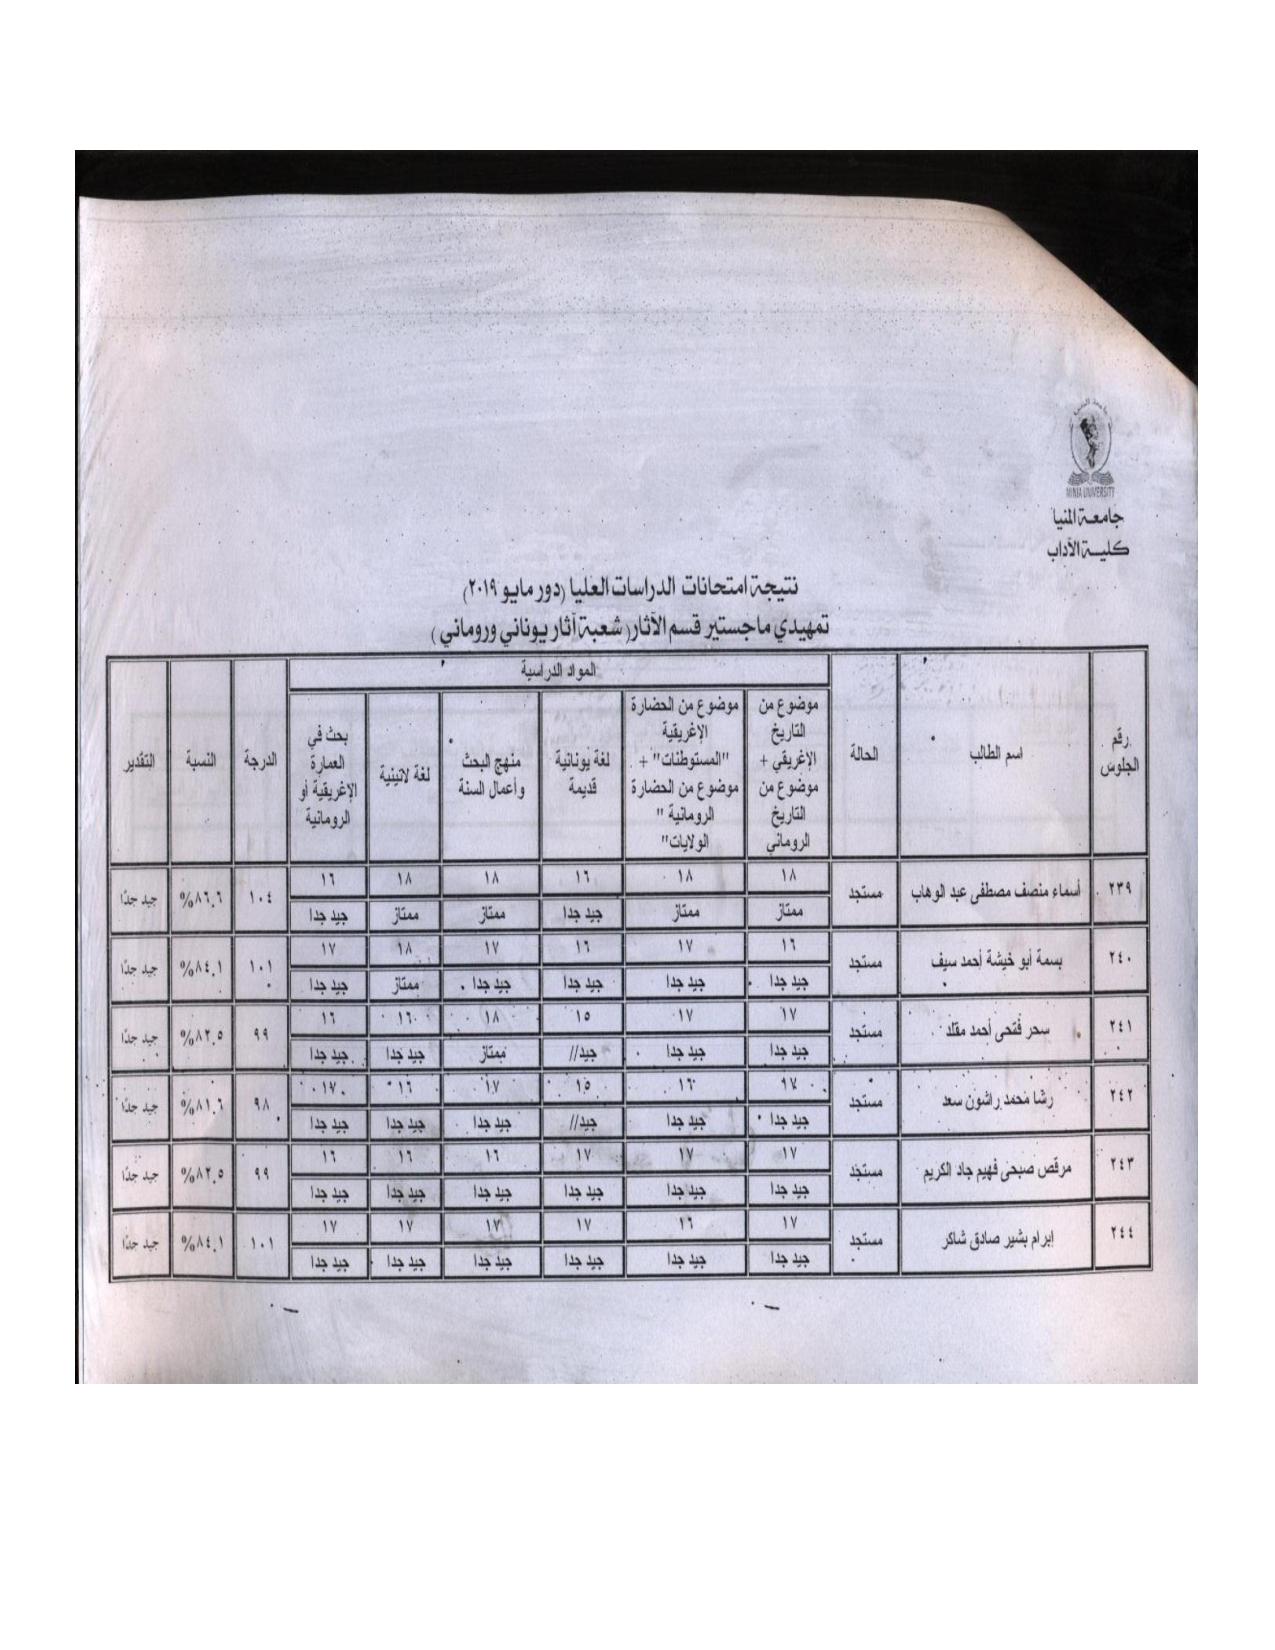 MINIA UNIVERSITY
جامعة المنيا
كلية الآداب
نتيجة امتحانات الدراسات العليا (دور مايو ٢٠١٩)
تمهيدي ماجستير قسم الآثار( شعبة آثار يوناني وروماني )
رقم الجلوس اسم الطالب الحالة المواد الدراسية الدرجة النسبة التقدير
موضوع من التاريخ الإغريقي + موضوع من التاريخ الروماني
موضوع من الحضارة الإغريقية "المستوطنات" + موضوع من الحضارة الرومانية " الولايات"
لغة يونانية قديمة
منهج البحث وأعمال السنة
لغة لاتينية
بحث في العمارة الإغريقية أو الرومانية
٢٣٩ أسماء منصف مصطفى عبد الوهاب مستجد ١٨ ١٨ ١٦ ١٨ ١٨ ١٦ ١٠٤ ٨٦.٦% جيد جدًا
ممتاز ممتاز جيد جدا ممتاز ممتاز جيد جدا
٢٤٠ بسمة أبو خيشة أحمد سيف مستجد ١٦ ١٧ ١٦ ١٧ ١٨ ١٧ ١٠١ ٨٤.١% جيد جدًا
جيد جدا جيد جدا جيد جدا جيد جدا ممتاز جيد جدا
٢٤١ سحر فتحى أحمد مقلد مستجد ١٧ ١٧ ١٥ ١٨ ١٦ ١٦ ٩٩ ٨٢.٥% جيد جدًا
جيد جدا جيد جدا جيد// ممتاز جيد جدا جيد جدا
٢٤٢ رشا محمد راشون سعد مستجد ١٧ ١٦ ١٥ ١٧ ١٦ ١٧ ٩٨ ٨١.٦% جيد جدًا
جيد جدا جيد جدا جيد// جيد جدا جيد جدا جيد جدا
٢٤٣ مرقص صبحى فهيم جاد الكريم مستجد ١٧ ١٧ ١٧ ١٦ ١٦ ١٦ ٩٩ ٨٢.٥% جيد جدًا
جيد جدا جيد جدا جيد جدا جيد جدا جيد جدا جيد جدا
٢٤٤ ابرام بشير صادق شاكر مستجد ١٧ ١٦ ١٧ ١٧ ١٧ ١٧ ١٠١ ٨٤.١% جيد جدًا
جيد جدا جيد جدا جيد جدا جيد جدا جيد جدا جيد جدا